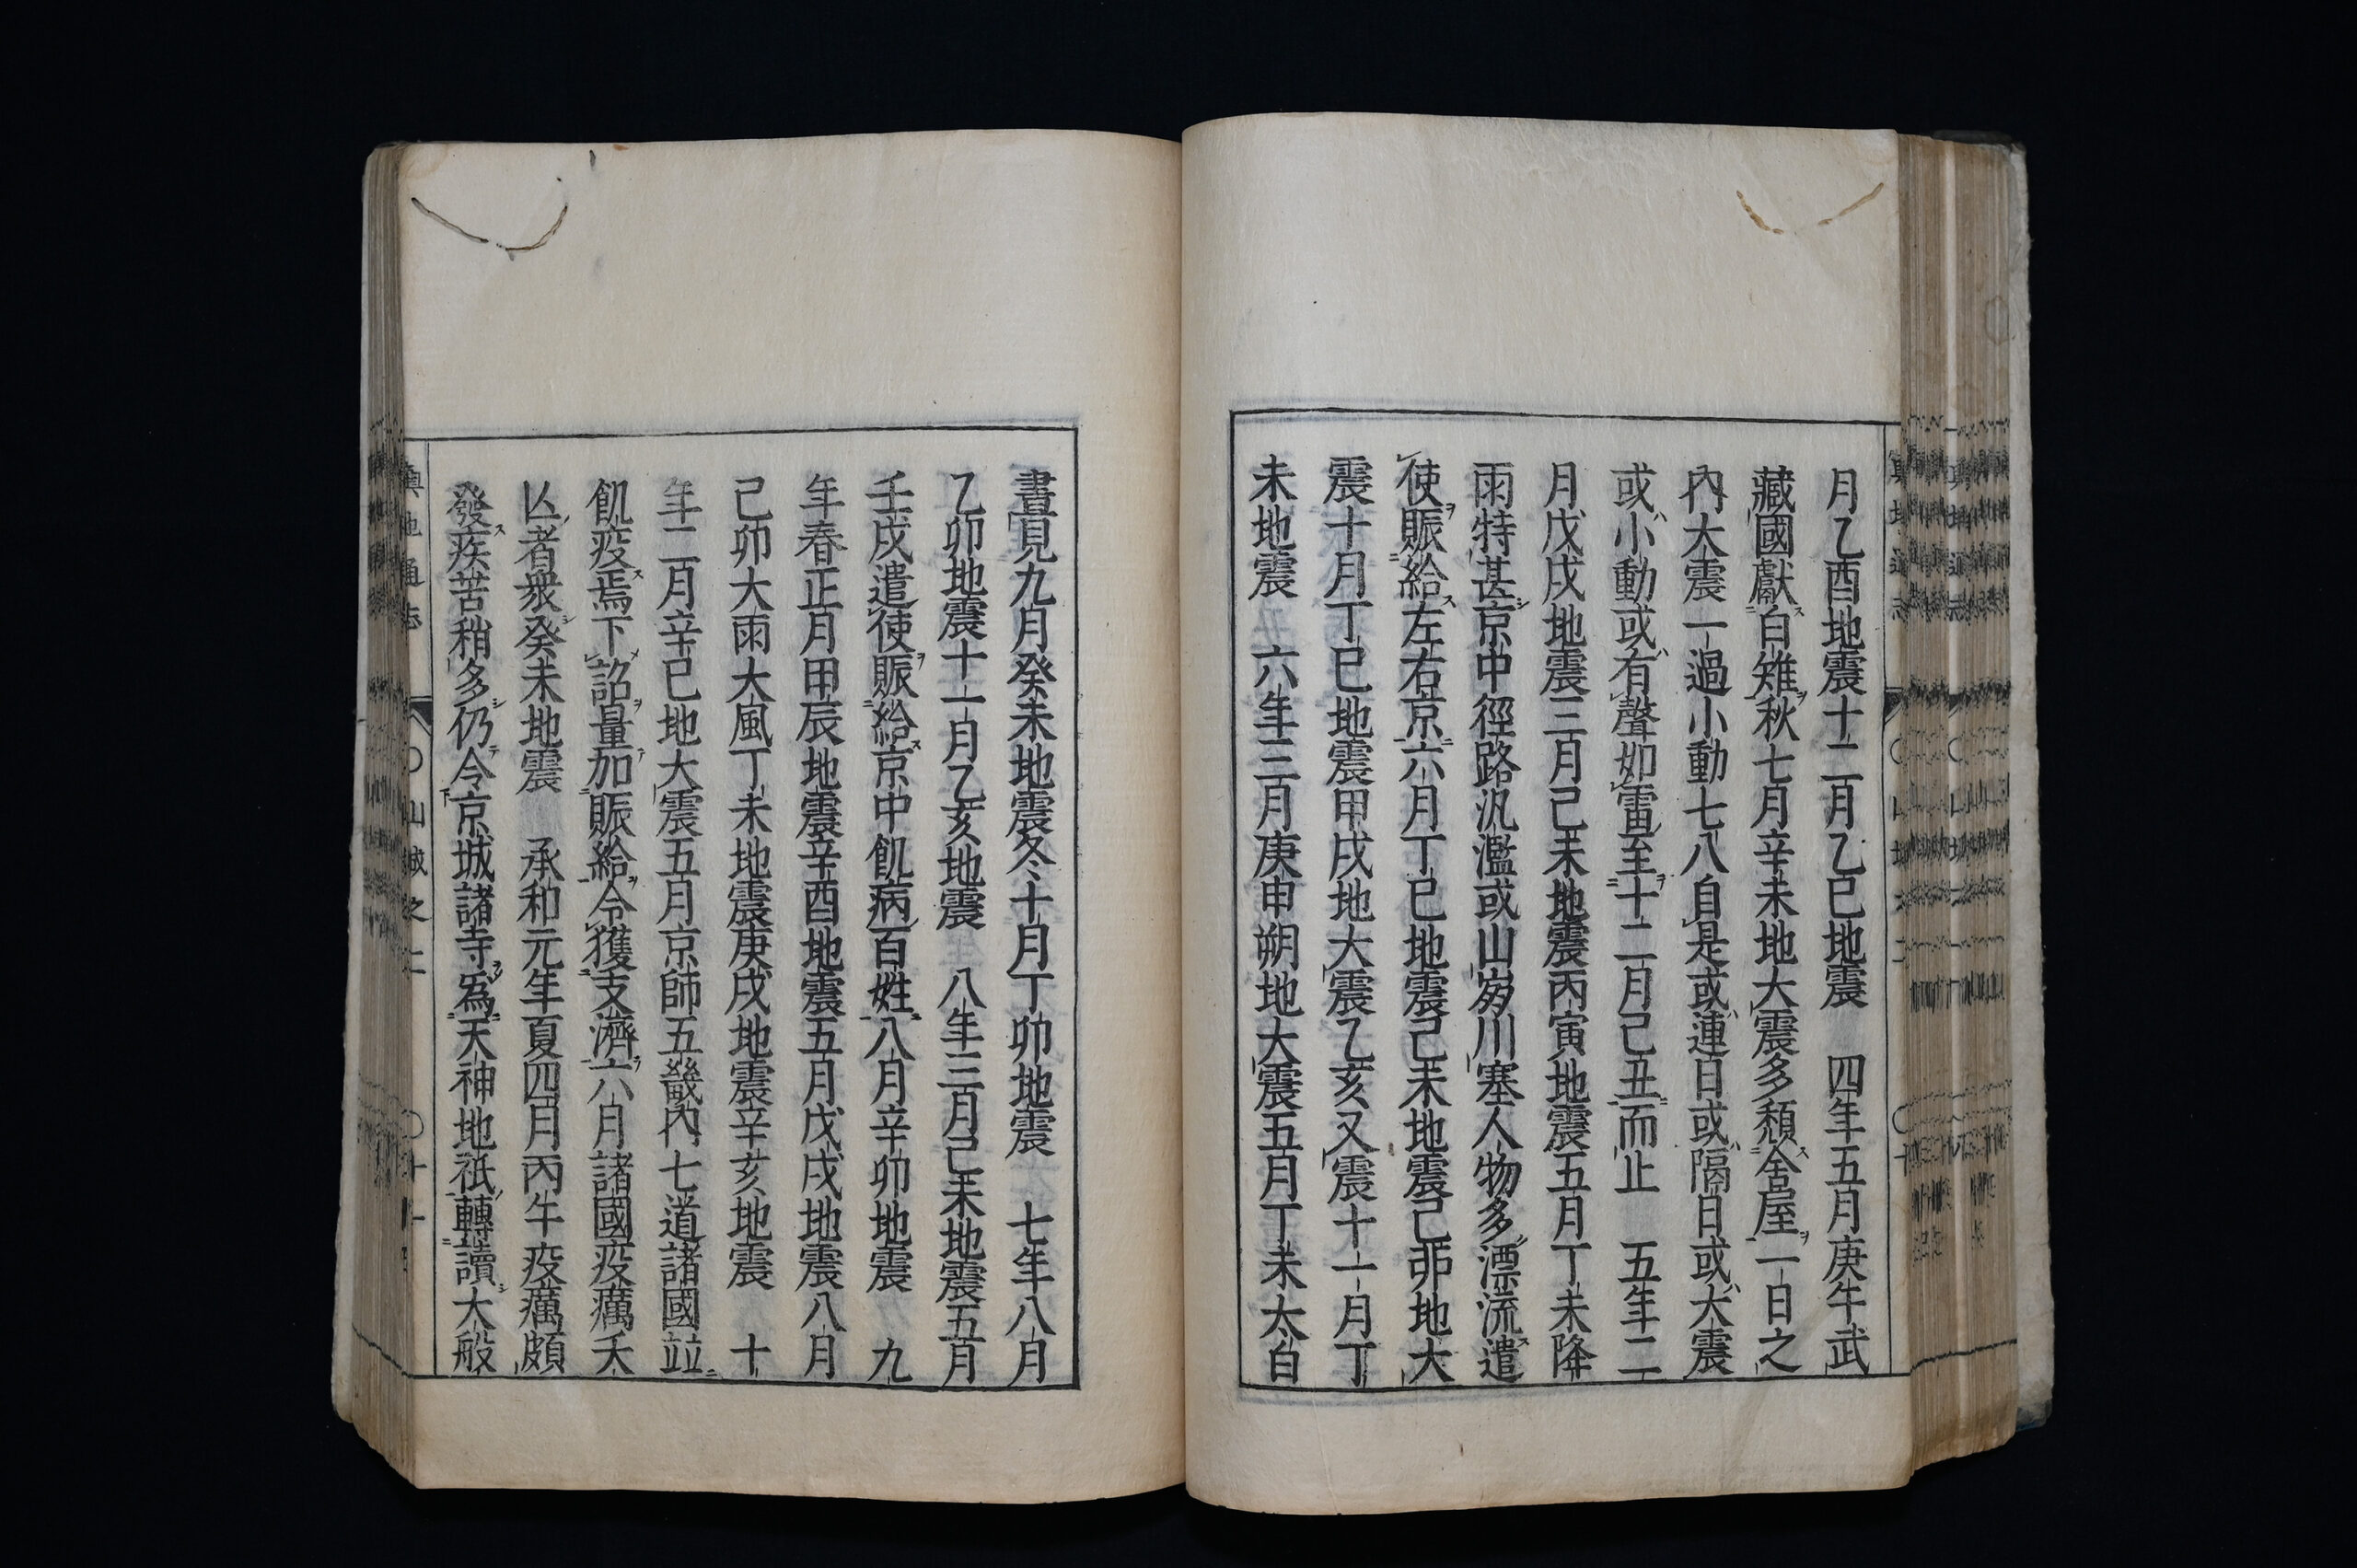 月乙酉地震十二月乙巳地震　四年五月庚午武
藏國獻白雉秋七月辛未地大震多頽舍屋一日之
內大震一過小動七八自是或連日或隔日或大震
或小動或有聲如雷至十二月己丑而止　五年二
月戊戌地震三月己未地震丙寅地震五月丁未降
雨特甚京中徑路汎濫或山崩川塞人物多漂流遣
使賑給左右京六月丁巳地震己未地震己卯地大
震十月丁巳地震甲戌地大震乙亥又震十一月丁
未地震　六年三月庚申朔地大震五月丁未太白
晝見九月癸未地震冬十月丁卯地震　七年八月
乙卯地震十一月乙亥地震　八年三月己未地震五月
壬戌遣使賑給京中飢病百姓八月辛卯地震　九
年春正月甲辰地震辛酉地震五月戊戌地震八月
己卯大雨大風丁未地震庚戌地震辛亥地震　十
年二月辛巳地大震五月京師五畿內七道諸國竝
飢疫焉下詔量加賑給令獲支濟六月諸國疫癘夭
亾者衆癸未地震　承和元年夏四月丙午疫癘頗
發疾苦稍多仍令京城諸寺爲天神地祇轉讀大般
輿地通志
○山城之二
○十一